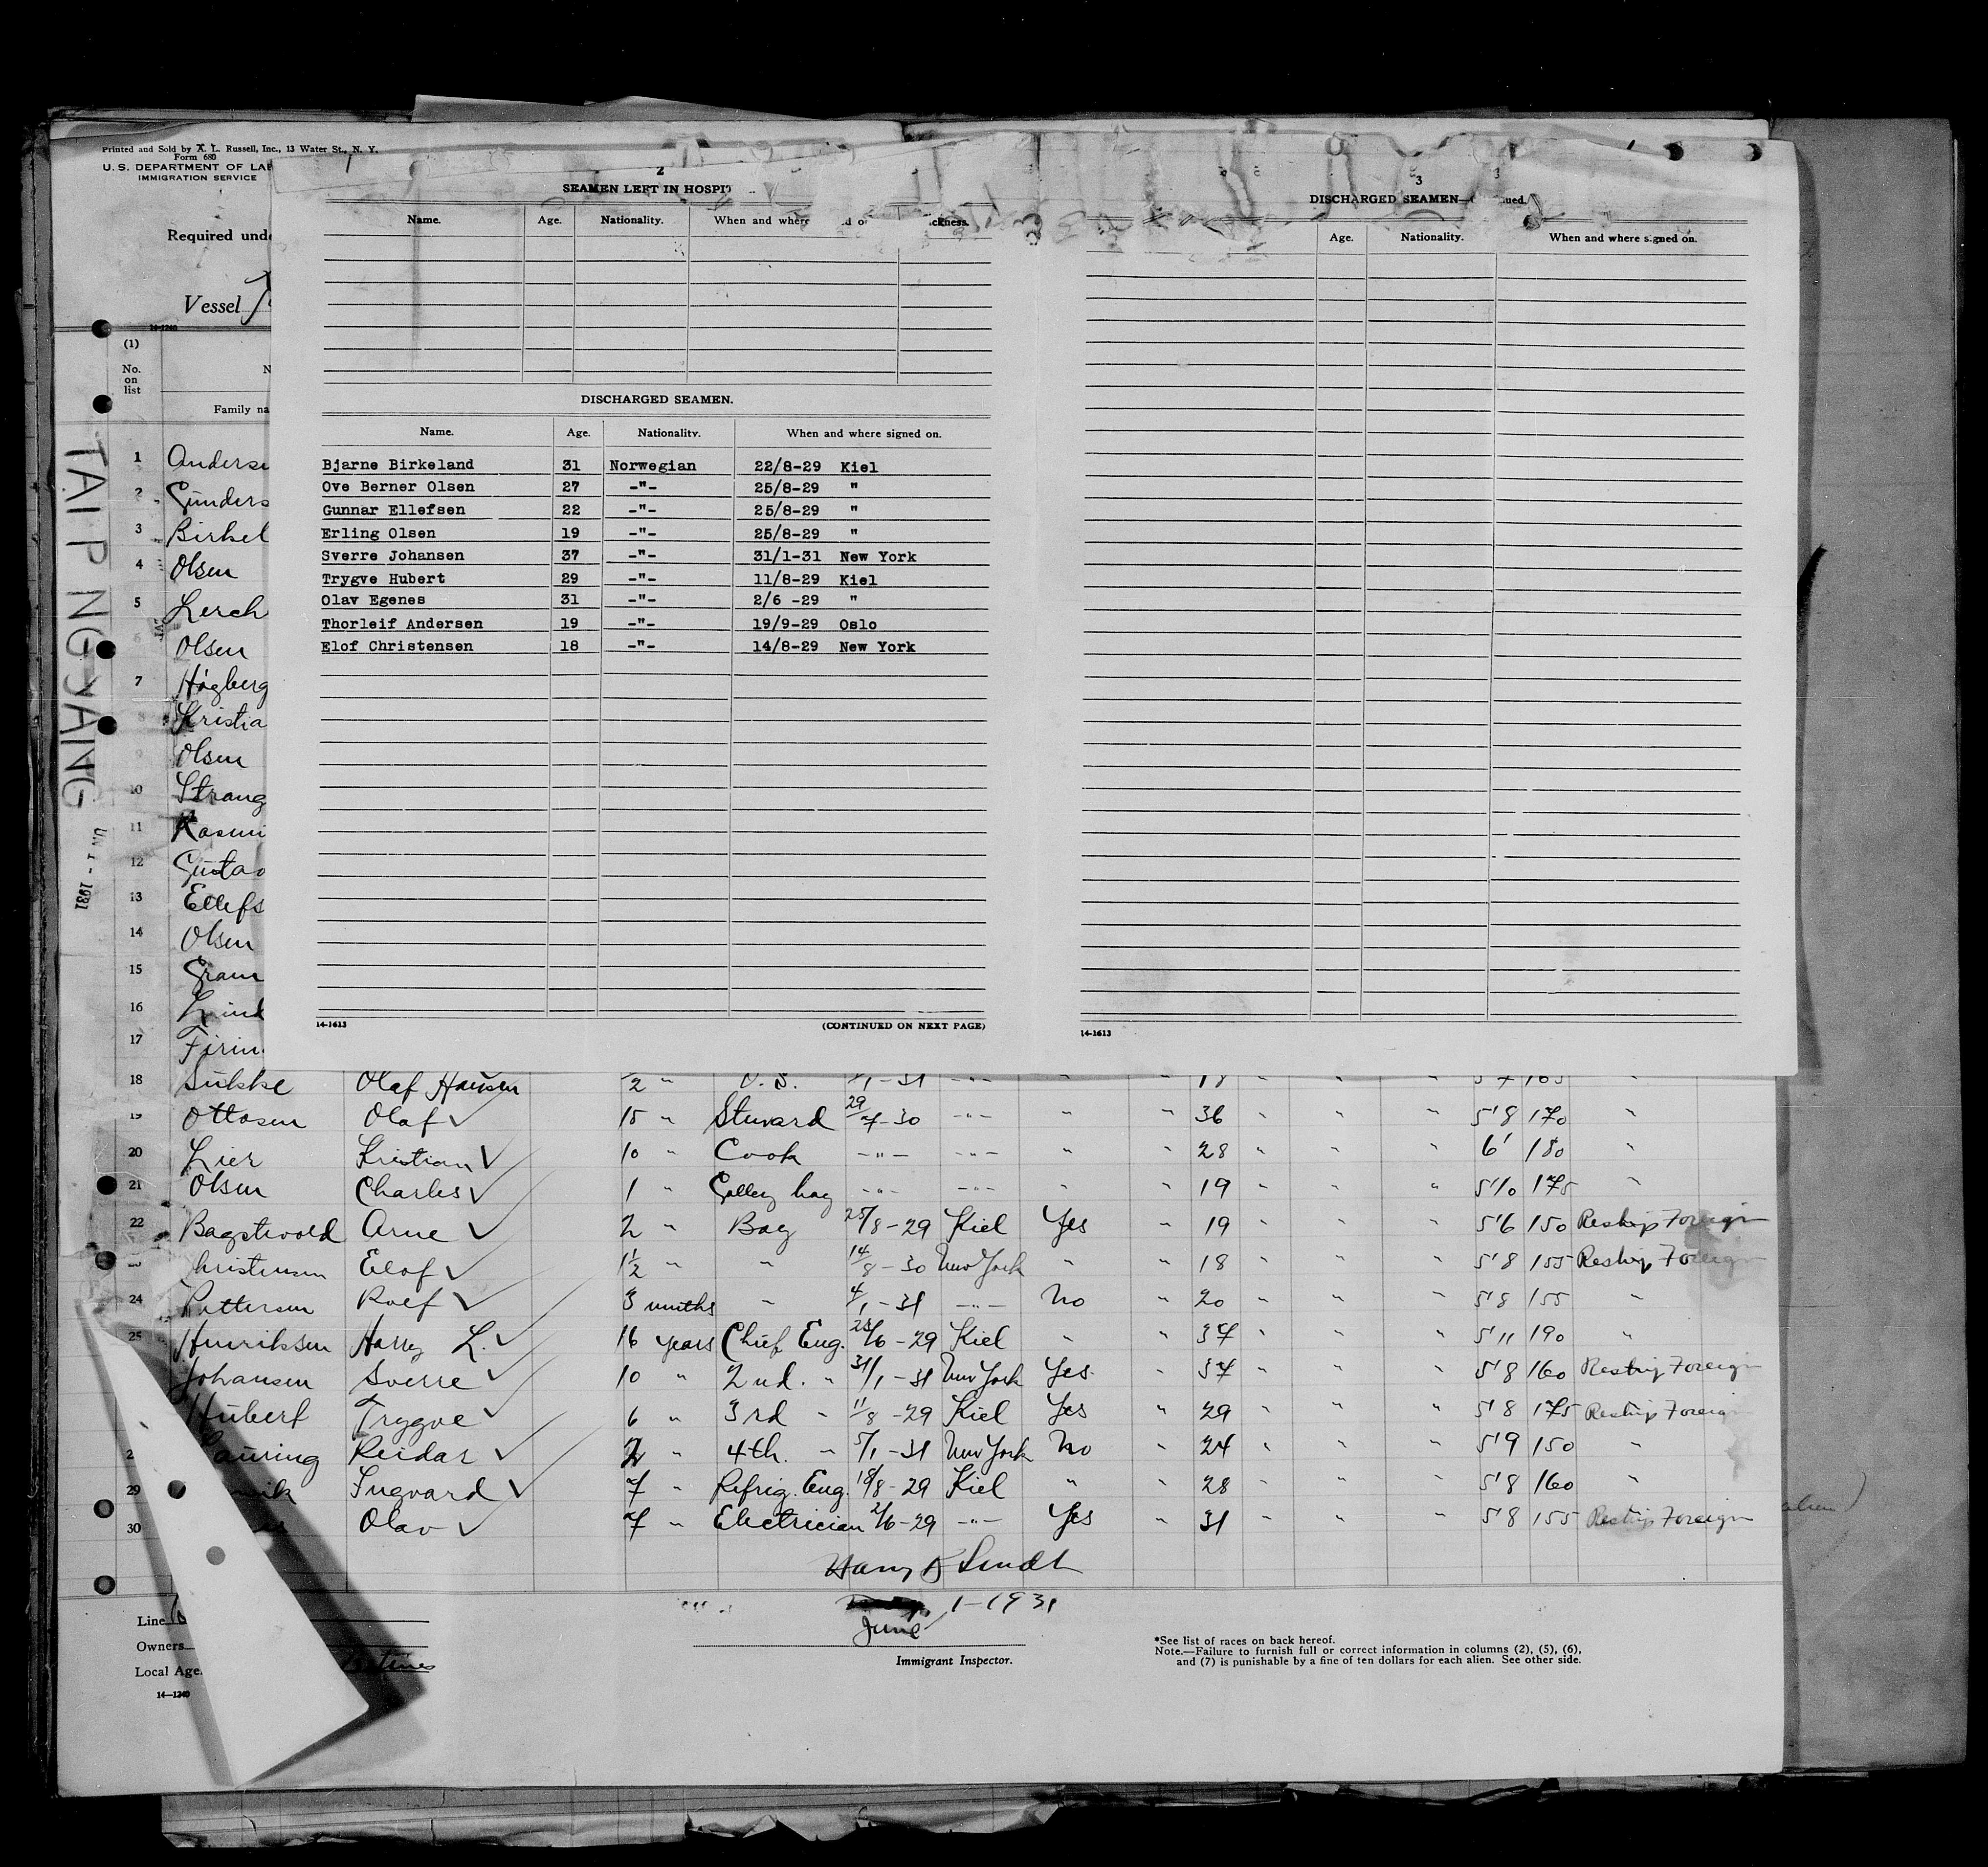 Printed and Sold by A. L. Russell, Inc., 13 Water St., N. Y.
Form 680
U. S. DEPARTMENT OF LA
IMMIGRATION SERVICE
Required unde
Vessel
14-1240
(1)
No. on list
Family na
TAI PING YANG
1 Anderse
2 Gunders
3 Birkel
4 Olsen
5 Lerch
6 Olsen
7 Høgberg
8 Kristia
9 Olsen
10 Strang
11 Rasmu
12 Gustav
13 Ellefs
14 Olsen
15 Gram
16 Lind
17 Firin
2
SEAMEN LEFT IN HOSPIT
Name. Age. Nationality. When and where ckness.
DISCHARGED SEAMEN.
Name. Age. Nationality. When and where signed on.
Bjarne Birkeland 31 Norwegian 22/8-29 Kiel
Ove Berner Olsen 27 -"- 25/8-29 "
Gunnar Ellefsen 22 -"- 25/8-29 "
Erling Olsen 19 -"- 25/8-29 "
Sverre Johansen 37 -"- 31/1-31 New York
Trygve Hubert 29 -"- 11/8-29 Kiel
Olav Egenes 31 -"- 2/6 -29 "
Thorleif Andersen 19 -"- 19/9-29 Oslo
Elof Christensen 18 -"- 14/8-29 New York
14-1613 (CONTINUED ON NEXT PAGE)
3
DISCHARGED SEAMEN— ued.
Age. Nationality. When and where signed on.
14-1613
18 Sukke Olaf Hansen 1/2 " O. S. /1-31 -"- " 18 " " " 5'7 165 "
19 Ottosen Olaf ✓ 15 " Steward 29/7-30 -"- " " 36 " " " 5'8 170 "
20 Lier Kristian ✓ 10 " Cook -"- -"- " " 28 " " " 6' 180 "
21 Olsen Charles ✓ 1 " Galley boy -"- -"- " " 19 " " " 5'10 175 "
22 Bagstevold Arne ✓ 2 " Boy 25/8-29 Kiel Yes " 19 " " " 5'6 150 Reship Foreign
Christensen Elof ✓ 1 1/2 " " 14/8-30 New York " " 18 " " " 5'8 155 Reship Foreign
24 Pettersen Rolf ✓ 3 months " 4/1-31 -"- No " 20 " " " 5'8 155 "
25 Henriksen Harry L. ✓ 16 years Chief Eng. 25/6-29 Kiel " " 37 " " " 5'11 190 "
Johansen Sverre ✓ 10 " 2nd. " 31/1-31 New York Yes " 37 " " " 5'8 160 Reship Foreign
Hubert Trygve ✓ 6 " 3rd " 11/8-29 Kiel Yes " 29 " " " 5'8 175 Reship Foreig
auring Reidar ✓ 2 " 4th. " 5/1-31 New York No " 24 " " " 5'9 150 "
29 vik Ingvard ✓ 7 " Refrig. Eng. 18/8-29 Kiel " " 28 " " " 5'8 160 "
30 Olav ✓ 7 " Electrician 2/6-29 -"- Yes " 31 " " " 5'8 155 Reship Foreign
June 1-1931
Immigrant Inspector.
Line
Owners
Local Age
14—1240
*See list of races on back hereof.
Note.—Failure to furnish full or correct information in columns (2), (5), (6),
and (7) is punishable by a fine of ten dollars for each alien. See other side.